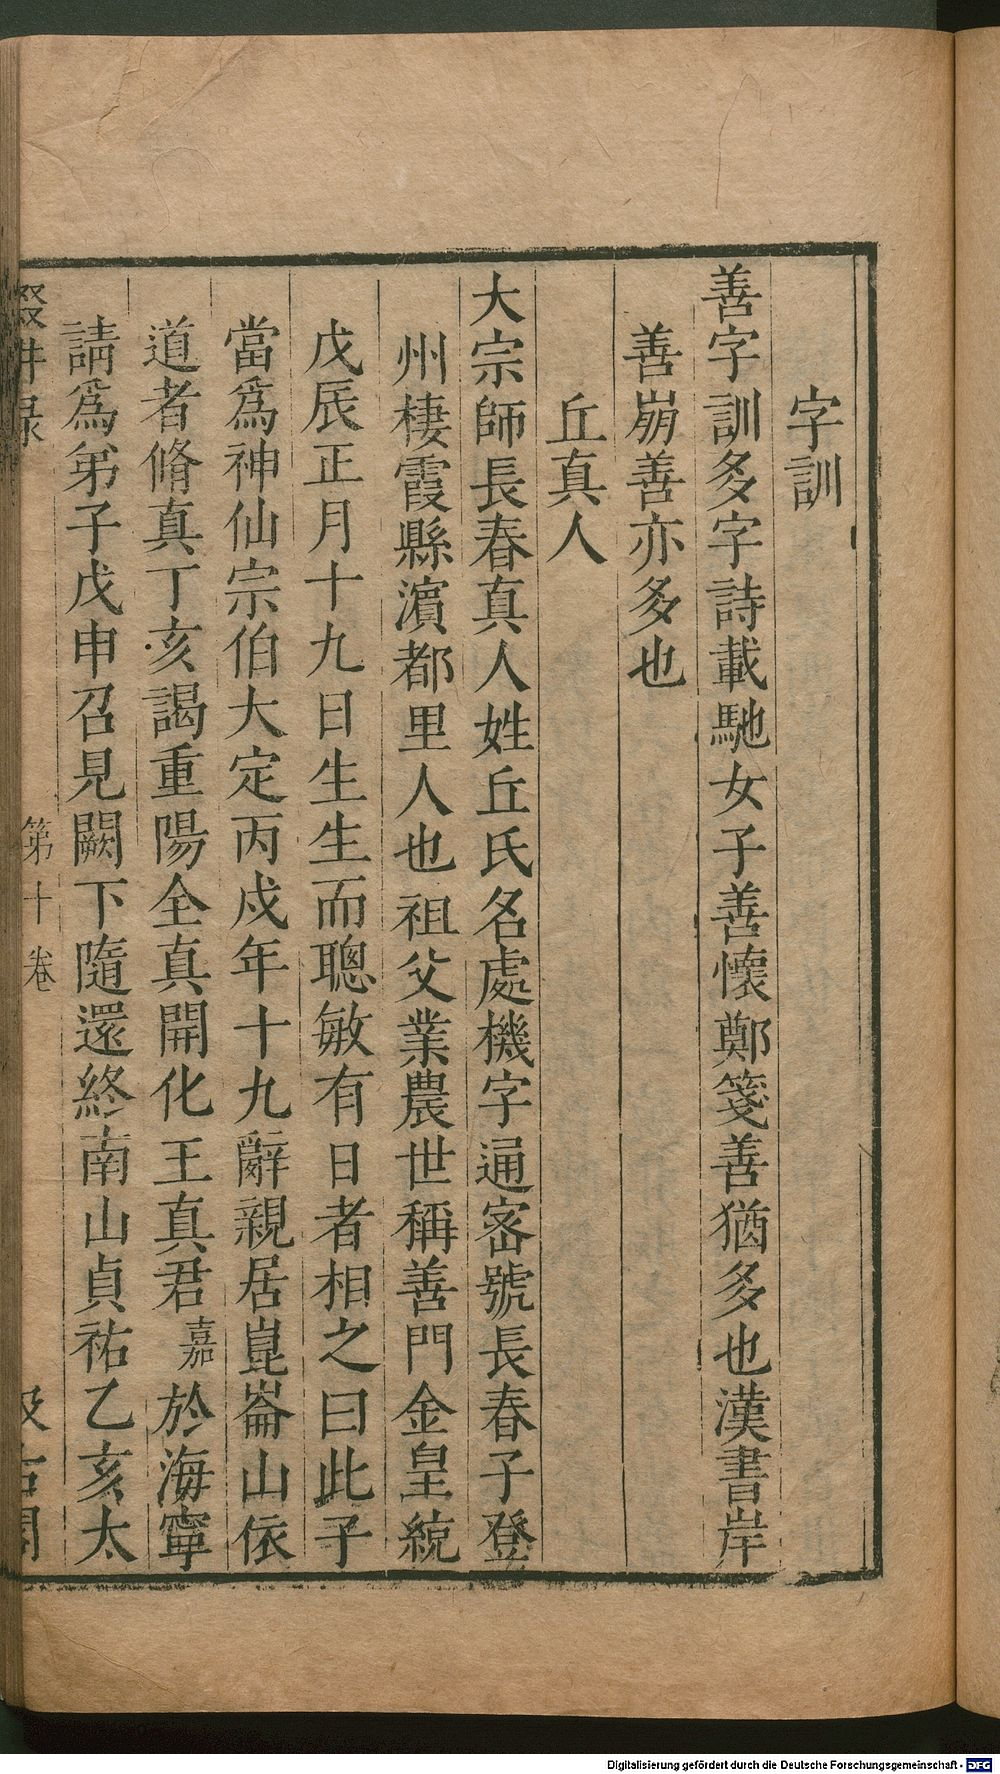 字訓
善字訓多字詩載馳女子善懷鄭箋善猶多也漢書岸
善崩善亦多也
丘真人
大宗師長春真人姓丘氏名處機字通宻號長春子登
州棲霞縣濵都里人也祖父業農世稱善門金皇統
戊辰正月十九日生生而聰敏有日者相之曰此子
當爲神仙宗伯大定丙戍年十九辭親居崑崙山依
道者脩真丁亥謁重陽全真開化王真君嘉於海寧
請爲弟子戊申召見闕下隨還終南山貞祐乙亥太
輟畊录 第十卷 汲古閣
Digitalisierung gefördert durch die Deutsche Forschungsgemeinschaft - DFG